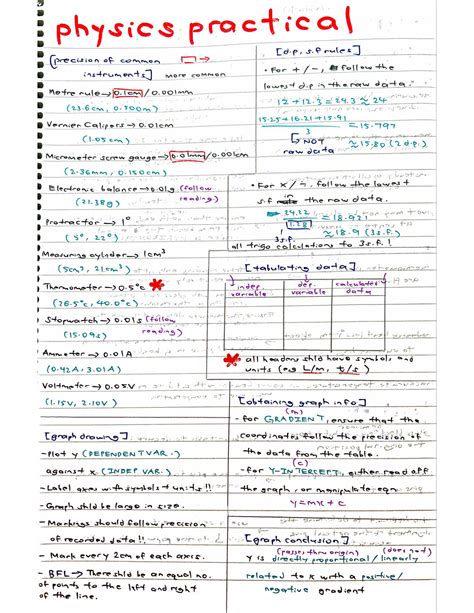 physics practical
[precision of common
instruments] more common
Metre rule → 0.1cm / 0.001mm
(23.6cm, 0.300m)
Vernier Calipers → 0.01cm
(1.05cm)
Micrometer screw gauge → 0.01mm / 0.001cm
(2.36mm, 0.150cm)
Electronic balance → 0.01g (follow
(21.38g) reading)
Protractor → 1°
(5°, 22°)
Measuring cylinder → 1cm³
(5cm³, 21cm³)
Thermometer → 0.5°c *
(26.5°c, 40.0°c)
Stopwatch → 0.01s (follow
(15.09s) reading)
Ammeter → 0.01A
(0.42A, 3.01A)
Voltmeter → 0.05V
(1.15V, 2.10V)
[graph drawing]
- Plot y (DEPENDENT VAR.)
against x (INDEP VAR.)
- Label axes with symbols + units !!
- Graph shld be large in size.
- Markings should follow precision
of recorded data!!
- Mark every 2cm of each axis.
- BFL → There shld be an equal no.
of points to the left and right
of the line.
[d.p, s.f rules]
• For +/-, follow the
lowest d.p in the raw data.
12 + 12.3 = 24.3 ≈ 24
15.25 + 16.21 + 15.91
3
= 15.797
≈ 15.80 (2 d.p.)
↳ NOT
raw data
• For x/÷, follow the lowest
s.f in the raw data.
24.22
1.28
= 18.921
≈ 18.9 (3s.f.)
3s.f.
all trigo calculations to 3s.f.!
[tabulating data]
indep. variable
dep. variable
calculated data
* all headers shld have symbols and
units (e.g L/m, t/s)
[obtaining graph info]
(m)
- for GRADIENT, ensure that the
coordinates follow the precision of
the data from the table.
(c)
- for Y-INTERCEPT, either read off
the graph, or manipulate eqn.
y=mx+c
[graph conclusion]
(passes thru origin) (does not)
y is directly proportional / linearly
related to x with a positive /
negative gradient